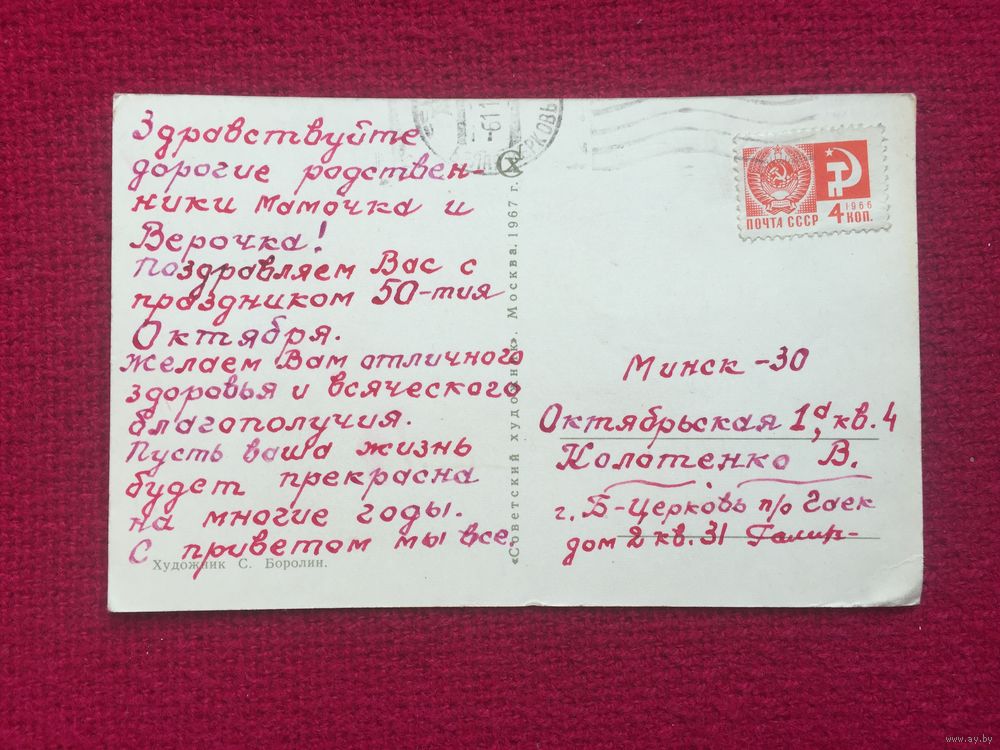 Здравствуйте
дорогие родствен-
ники мамочка и
Верочка!
Поздравляем Вас с
праздником 50-тия
Октября.
Желаем Вам отличного
здоровья и всяческого
благополучия.
Пусть ваша жизнь
будет прекрасна
на многие годы.
С приветом мы все.
Художник С. Боролин.
«Советский художник». Москва. 1967 г.
ЦЕРКОВЬ
ПОЧТА СССР
1966
4 КОП.
Минск -30
Октябрьская 1а, кв. 4
Колотенко В.
г. Б-Церковь п/о Гаек
дом 2 кв. 31
www.ay.by